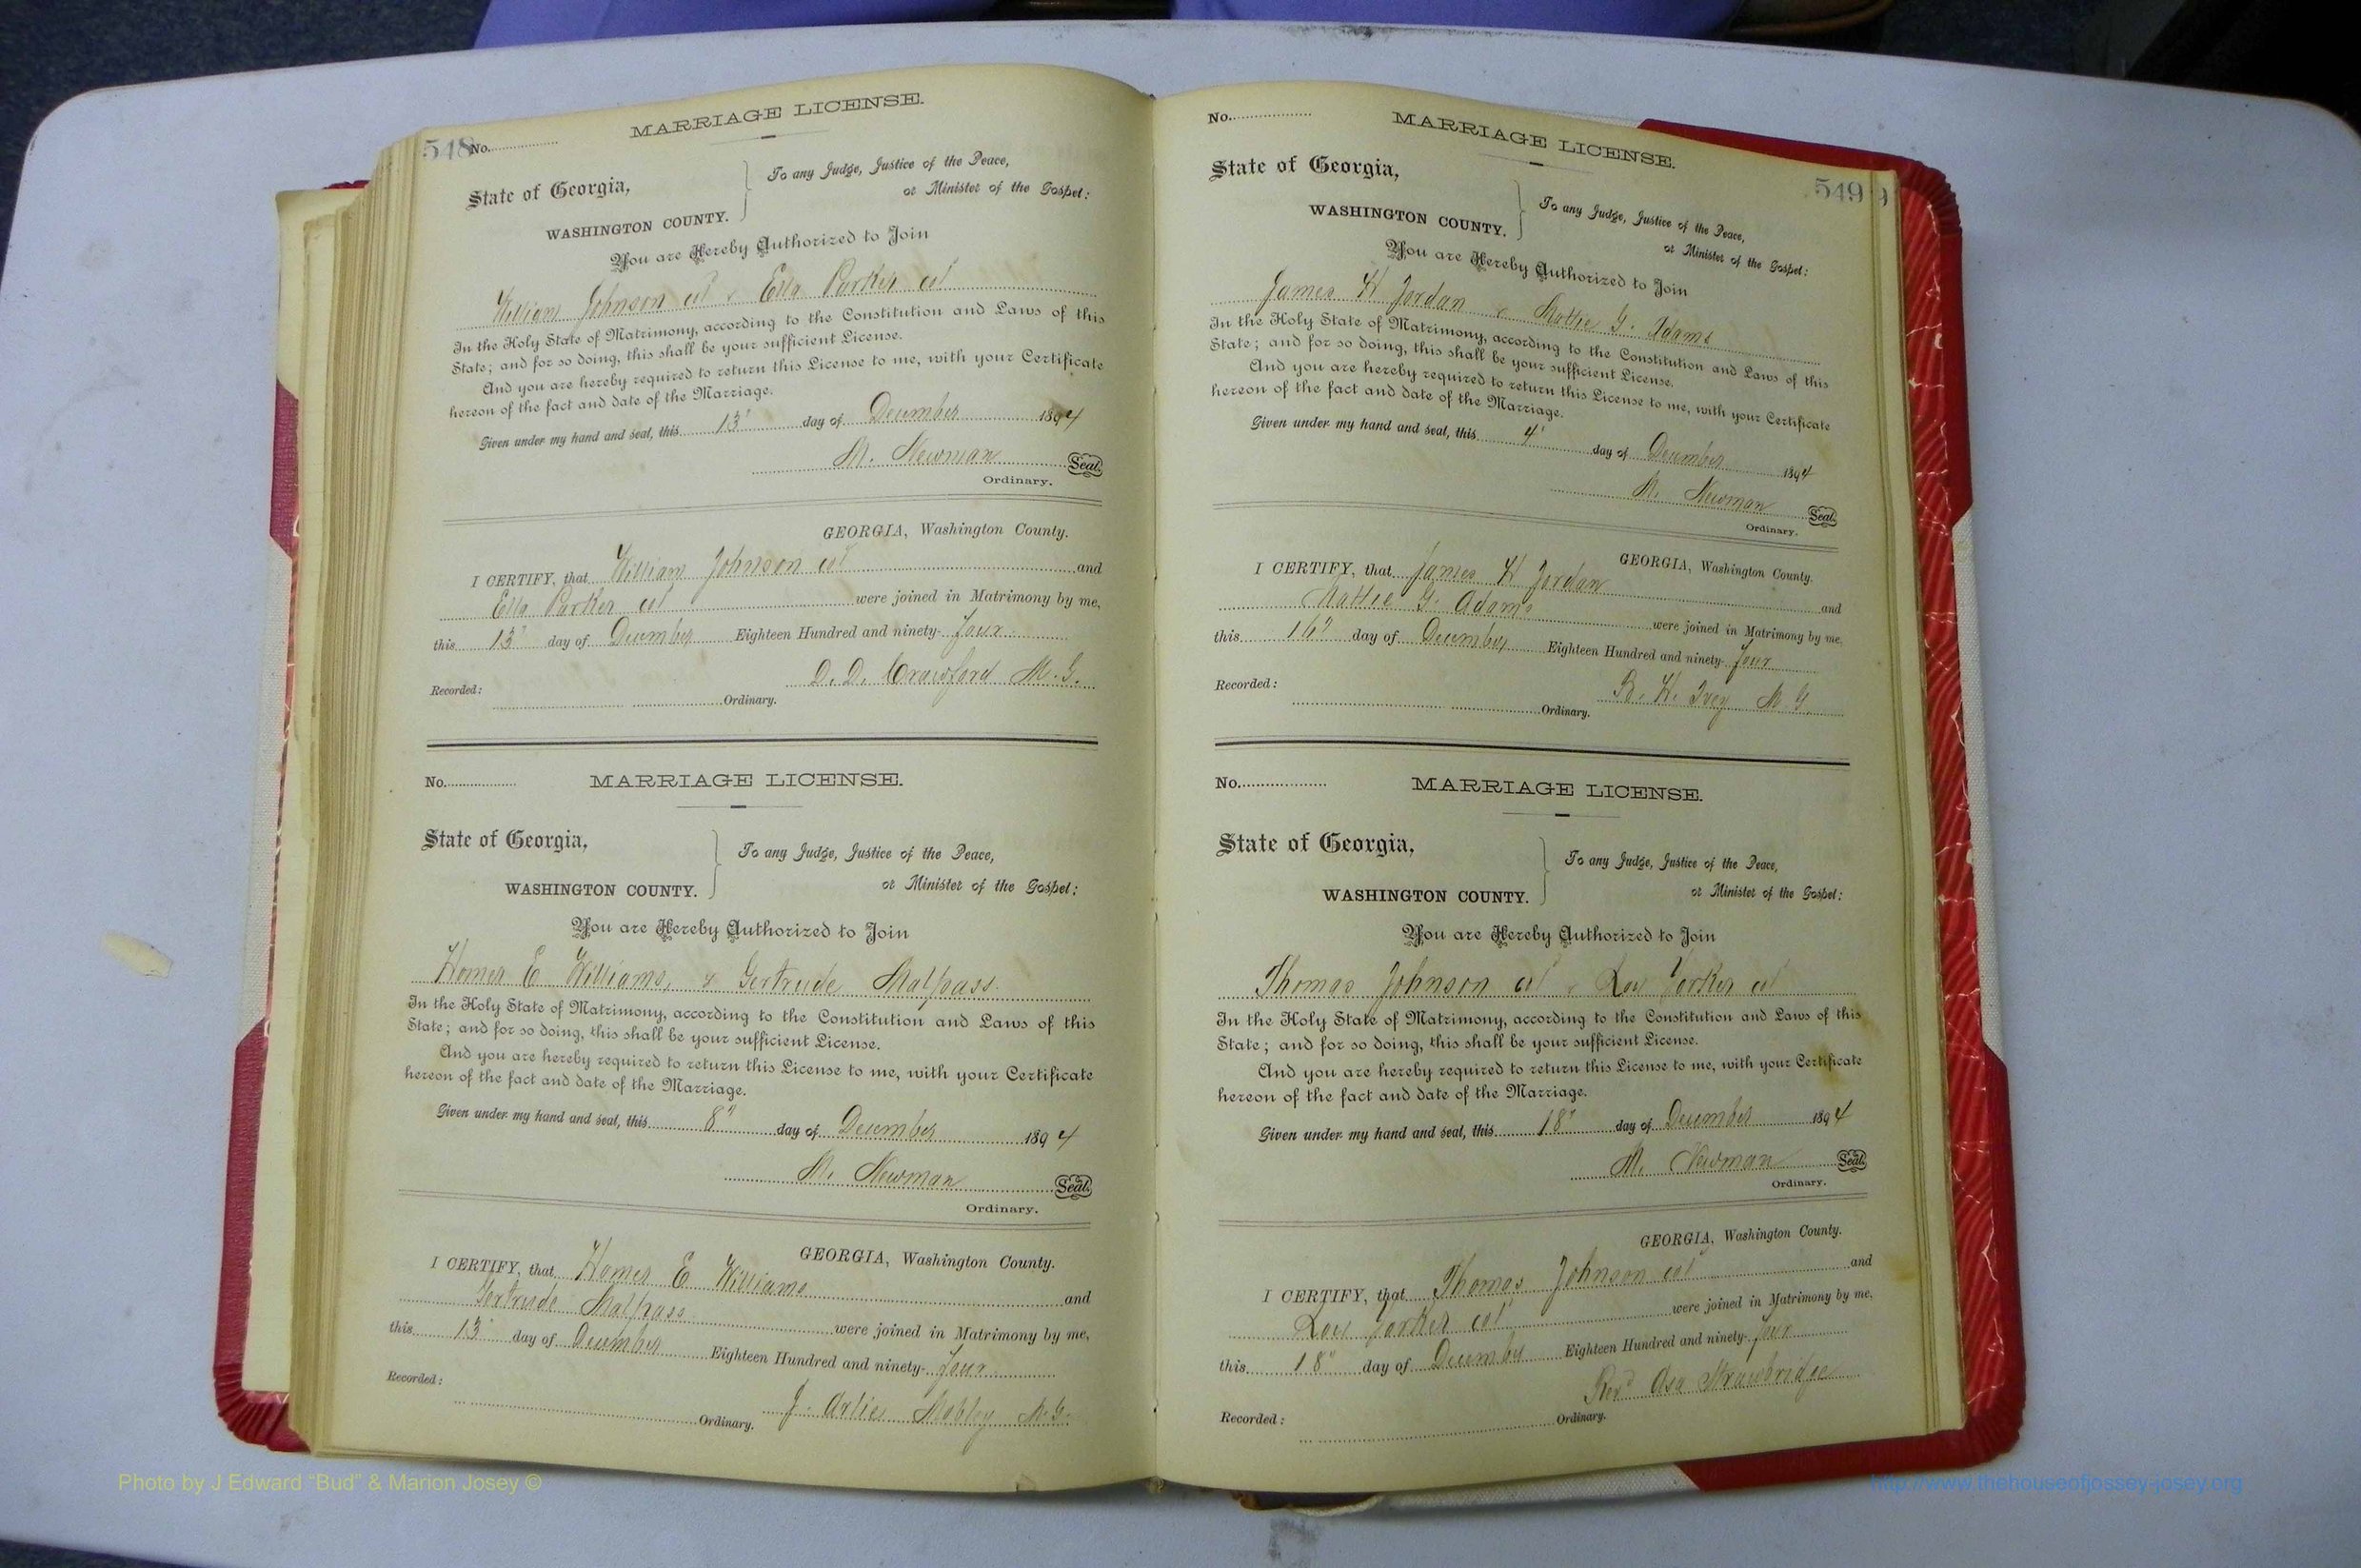 548
No.
MARRIAGE LICENSE.
State of Georgia,
WASHINGTON COUNTY.
To any Judge, Justice of the Peace,
or Minister of the Gospel:
You are Hereby Authorized to Join
William Johnson col & Ella Parker col
In the Holy State of Matrimony, according to the Constitution and Laws of this
State; and for so doing, this shall be your sufficient License.
And you are hereby required to return this License to me, with your Certificate
hereon of the fact and date of the Marriage.
Given under my hand and seal, this 13" day of December 1894
M. Newman Seal.
Ordinary.
GEORGIA, Washington County.
I CERTIFY, that William Johnson col and
Ella Parker col were joined in Matrimony by me,
this 13" day of December Eighteen Hundred and ninety-four
D. D. Crawford M.G.
Recorded:
Ordinary.
No.
MARRIAGE LICENSE.
State of Georgia,
WASHINGTON COUNTY.
To any Judge, Justice of the Peace,
or Minister of the Gospel:
You are Hereby Authorized to Join
Homer E Williams, & Gertrude Malpass
In the Holy State of Matrimony, according to the Constitution and Laws of this
State; and for so doing, this shall be your sufficient License.
And you are hereby required to return this License to me, with your Certificate
hereon of the fact and date of the Marriage.
Given under my hand and seal, this 8" day of December 1894
M. Newman Seal.
Ordinary.
GEORGIA, Washington County.
I CERTIFY, that Homer E Williams and
Gertrude Malpass were joined in Matrimony by me,
this 13" day of December Eighteen Hundred and ninety-four
J. Arlie Mobley M.G.
Recorded:
Ordinary.
No.
MARRIAGE LICENSE.
549
State of Georgia,
WASHINGTON COUNTY.
To any Judge, Justice of the Peace,
or Minister of the Gospel:
You are Hereby Authorized to Join
James H Jordan & Mattie G. Adams
In the Holy State of Matrimony, according to the Constitution and Laws of this
State; and for so doing, this shall be your sufficient License.
And you are hereby required to return this License to me, with your Certificate
hereon of the fact and date of the Marriage.
Given under my hand and seal, this 4" day of December 1894
M. Newman Seal.
Ordinary.
GEORGIA, Washington County.
I CERTIFY, that James H Jordan and
Mattie G. Adams were joined in Matrimony by me,
this 16" day of December Eighteen Hundred and ninety-four
H. Ivey M.G.
Recorded:
Ordinary.
No.
MARRIAGE LICENSE.
State of Georgia,
WASHINGTON COUNTY.
To any Judge, Justice of the Peace,
or Minister of the Gospel:
You are Hereby Authorized to Join
Thomas Johnson col & col
In the Holy State of Matrimony, according to the Constitution and Laws of this
State; and for so doing, this shall be your sufficient License.
And you are hereby required to return this License to me, with your Certificate
hereon of the fact and date of the Marriage.
Given under my hand and seal, this 18" day of December 1894
M. Newman Seal.
Ordinary.
GEORGIA, Washington County.
I CERTIFY, that Thomas Johnson col and
col were joined in Matrimony by me,
this 18" day of December Eighteen Hundred and ninety-four
Revd Asa Strawbridge
Recorded:
Ordinary.
Photo by J Edward “Bud” & Marion Josey ©
http://www.thehouseofjossey-josey.org